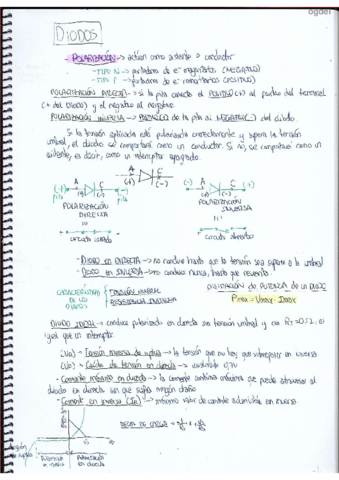 DIODOS
POLARIZACIÓN -> actúan como aislante o conductor
- TIPO N -> portadores de e- mayoritarios (NEGATIVO)
- TIPO P -> portadores de e- minoritarios (POSITIVO)
POLARIZACIÓN DIRECTA -> si la pila conecta el POSITIVO (+) al
(+ del DIODO) y el negativo al negativo.
POLARIZACIÓN INVERSA -> de la pila al NEGATIVO (-) del diodo.
Si la tensión aplicada está polarizada correctamente y supera la tensión
umbral, el diodo se comportará como un conductor. Si no, se comportará como un
aislante, es decir, como un interruptor apagado.
A C
(+) (-)
(+) pila
(-) pila
A C
(+) (-)
(-) (+)
POLARIZACIÓN
DIRECTA
POLARIZACIÓN
INVERSA
circuito cerrado
circuito abierto
- DIODO EN DIRECTA -> no conduce hasta que la tensión sea superior a la umbral
- DIODO EN INVERSA -> no conduce nunca, hasta que revienta
CARACTERÍSTICAS
DE LOS
DIODOS
TENSIÓN UMBRAL
RESISTENCIA INTERNA
DISIPACIÓN DE POTENCIA DE UN DIODO
DIODO IDEAL -> conduce polarizado en directa sin tensión umbral y con
igual que un interruptor.
- Tensión inversa de ruptura -> la tensión que no hay que sobrepasar en inversa
- Caída de tensión en directa -> 0,7V
- Corriente máxima en directa -> la corriente continua máxima que puede atravesar al
diodo en directa sin que sufra ningún daño
- Corriente en inversa -> máximo valor de corriente admisible en inversa
RECTA DE CARGA